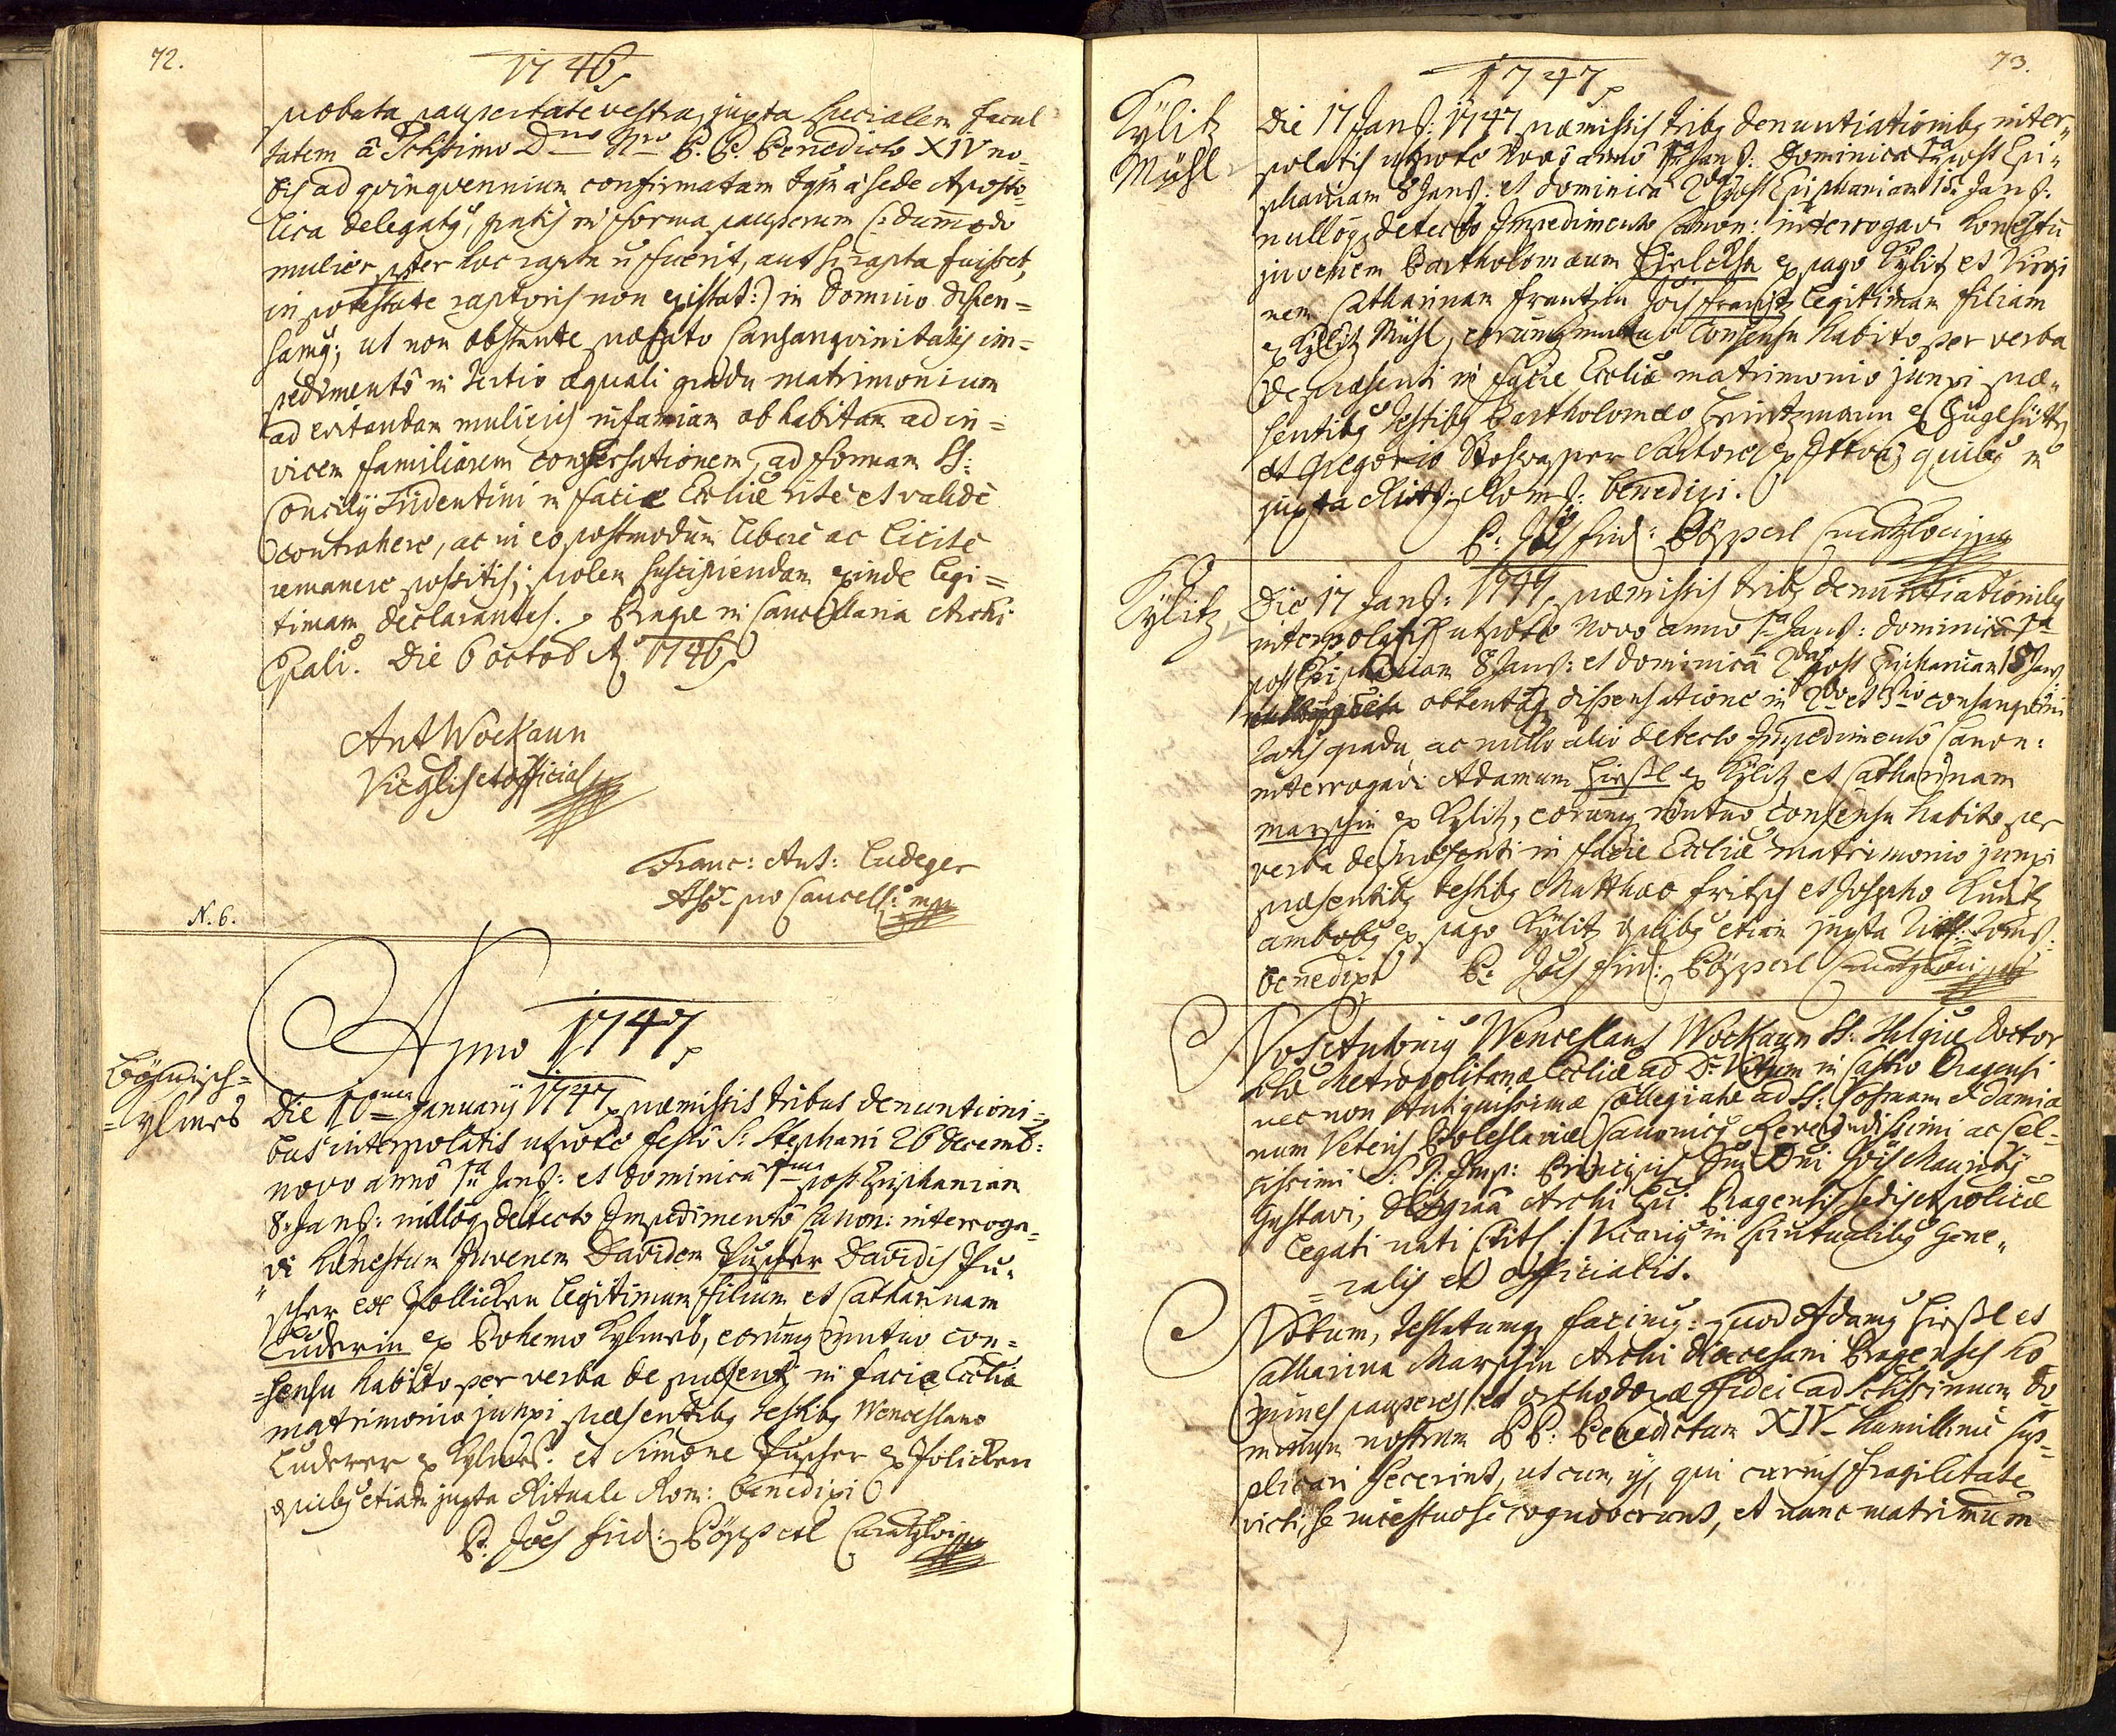 72.
1746
probata paupertate vestra, juxta specialem facul
tatem â Sctissimo Dno Nro P. P. Benedicto XIV no-
bis ad qvinqvennium confirmatam tqm á Sede Aposto-
lica delegatg, gratis in forma pauperum (: dummodo
mulier pter hoc rapta ñ fuerit, aut si rapta fuisset,
in potestate raptoris non existat:) in Domino dispen=
samg; ut non obstante præfato Consanqvinitatis im-
pedimentô in tertio æquali gradu matrimonium
ad evitandam mulieris infamiam ob habitam ad in=
vicem familiarem conversationem, ad formam SS:
Concilij Tridentini in facie Eccliæ rite et valide
contrahere, ac in eo postmodum libere ac licite
remanere possitis; prolem suscipiendam exinde legi=
timam declarantes. Pragæ in Cancellaria Archi
Epali. Die 6 octob A 1746
Ant Wockaun
Vic glis et official
Franc: Ant: Ludeger
Assr pro Cancell: mp
N. 6.
Anno 1747
Böhmisch=
=Kylmes
Die 10ma January 1747 præmissis tribus denuntioni=
bus interpolatis utpote festô S: Stephani 26 decemb:
novo annô 1a Janr: et dominicâ 1ma post Epiphaniam
8 Janr: nullôq detecto Impedimentô Canon: interroga=
vi honestum Juvenem Davidem Puscher Davidis Pu=
scher ex Pollicken legitimum filium et Catharinam
Luderin ex Bohemo Kylmes, eorumq mutuo con=
=sensu habito per verba de præsenti in facie Eccliæ
matrimonio junxi præsentibg testibg Wenceslao
Luderer ex Kylmes. et Simone Puscher ex Policken
qvibg etiam juxta Rituale Rom: benedixi
P. Joes Frid: Pöpperl Curatg loci mp
73.
1747
Kÿlitz
Mühl
Die 17 Janr: 1747 præmissis tribg denuntiationibg inter=
polatis utpote Novô annô 1a Janr: Dominicâ 1a post Epi=
phaniam 8 Janr: et dominicâ 2da post Epiphaniam 15 Janr:
nullôq detecto Impedimento Canon: interrogavi honestũ
juvenem Bartholomæum ex pago Kÿlitz et Virgi
nem Catharinam Frantzin Jois Frantz legitimam filiam
ex Kÿlitz Mühl, eorumq mutuo consensu habito per verba
de præsenti in facie Eccliæ matrimonio junxi præ=
sentibg testibg Bartholomæo Heintzmann ex
et Gregorio quibg
juxta Ritt: Rom: benedixi.
P: Joes Frid: Pöpperl Curatg loci mp
Kÿlitz
Die 17 Janr: 1747 præmissis tribg denuntiationibg
interpolatis utpote Novo anno 1a Janr: dominicâ 1a
post Epiphaniam 8 Janr: et dominicâ 2da post Epiphaniam 15 Janr
obtentâq dispensatione in 2do et 3tio consanqvini
tatis gradu, ac nullo alio detecto Impedimentô Canon:
interrogavi Adamum Hießl ex Kÿlitz et Catharinam
Marschin ex Kÿlitz, eorumq mutuo consensu habito per
verba de præsenti in facie Eccliæ matrimonio junxi
præsentibg testibg Matthæo Fritsch et Josepho
ambobg ex pago Kÿlitz qvibg etiam juxta Ritt: Rom:
benedixi P: Joes Frid: Pöpperl Curatg loci mp
Nos Antonig Wenceslaus Wockaun SS: Thlgiæ Doctor
Metropolitanæ Eccliæ ad D: Vitum in Castro Pragensi
nec non Antiquissimæ Collegiatæ ad SS: Cosmam et Damia
num Veteris Boleslaviæ Canonicg Reverendissimi ac Cel=
sissimi S: R: Imp: Principis Dni Dni Jois Mauritij
Gustavi, Dei gratiâ Archi Epi Pragensis Sedis Apolicæ
Legati nati (: Titl :) Vicarig in Spiritualibg Gene=
=ralis et Officialis.
Notum, testatumq facimg: quod Adamg Hießl et
Catharina Marschin Archi Diœcesani Pragenses ho
mines pauperes et orthodoxæ fidei ad Sctissimum Do
minum nostrum P P: Benedictum XIV humillime sup=
plicari fecerint, ut cum ij, qui carnis fragilitate
victi, se incestuose cognoverunt, et nunc matrimũm